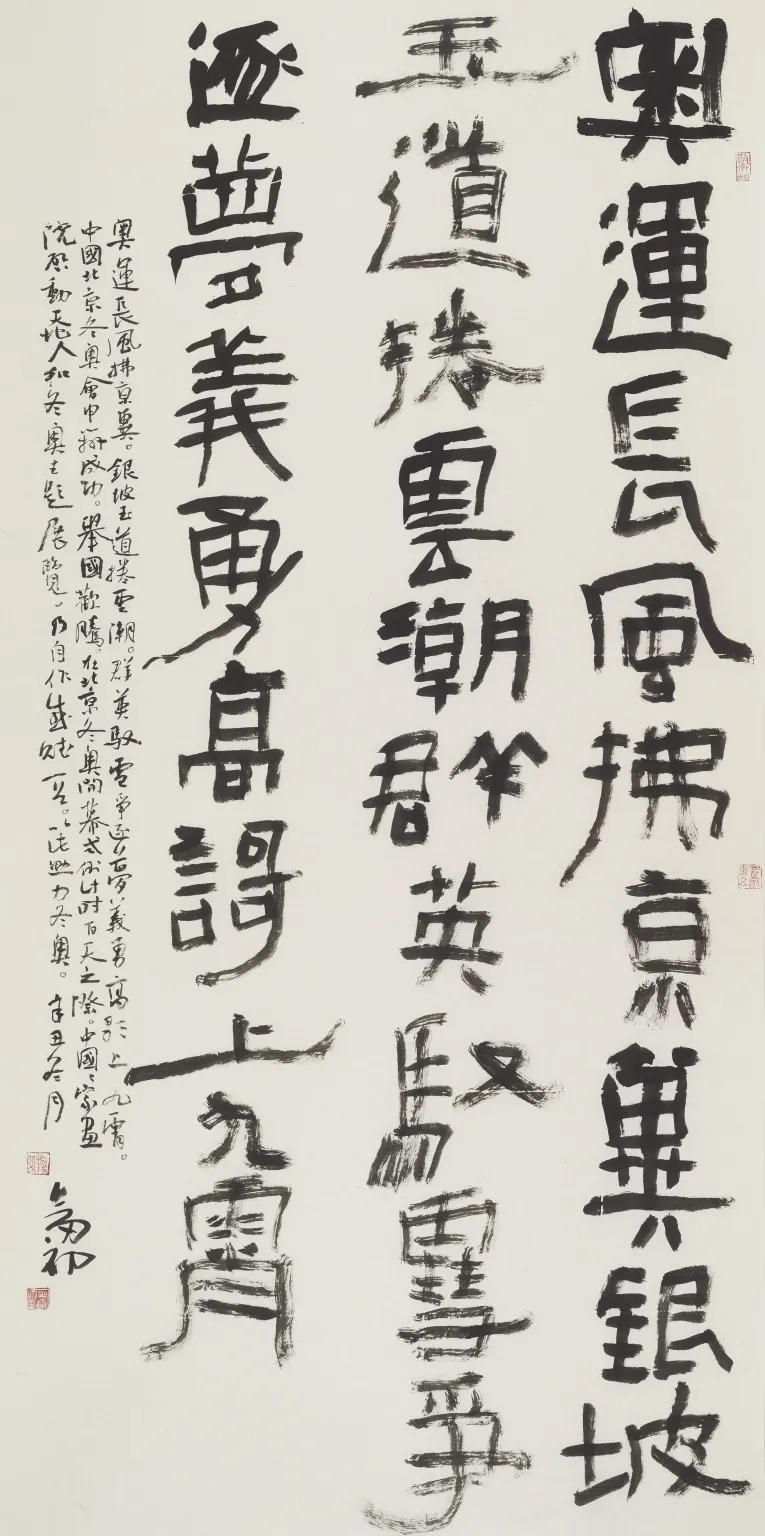 奧運長風拂京冀銀坡
玉道捲雲潮群英馭雪爭
逐夢義勇高謌上九霄
奧運長風拂京冀。銀坡玉道捲雲潮。群英馭雪爭逐夢義勇高歌上九霄。
中國北京冬奧會申辦成功。舉國歡騰。在北京冬奧開幕式倒計時百天之際。中國國家畫
院啟動天地人和冬奧主題展覽。乃自作感賦一首。以此助力冬奧。辛丑冬月